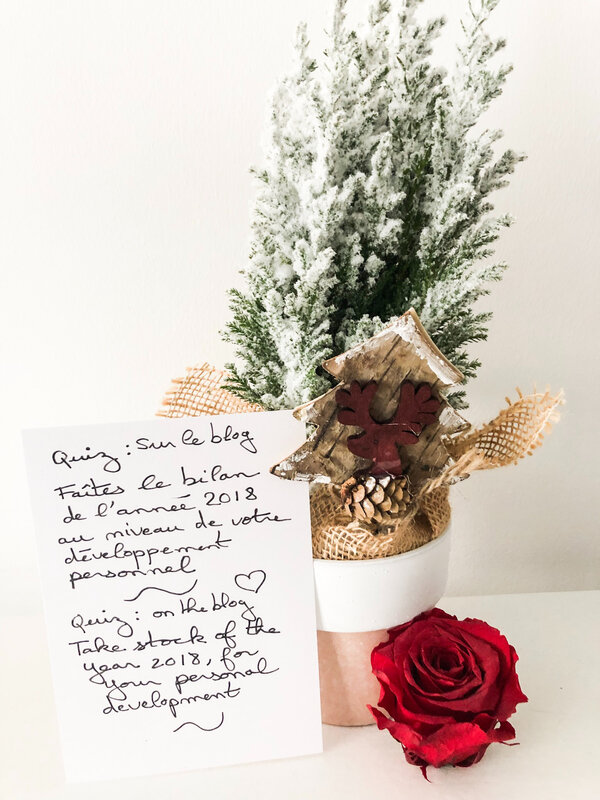 Quiz : Sur le blog
Faîtes le bilan
de l'année 2018
au niveau de votre
développement
personnel
Quiz : on the blog
Take stock of the
year 2018, for
your personal
development